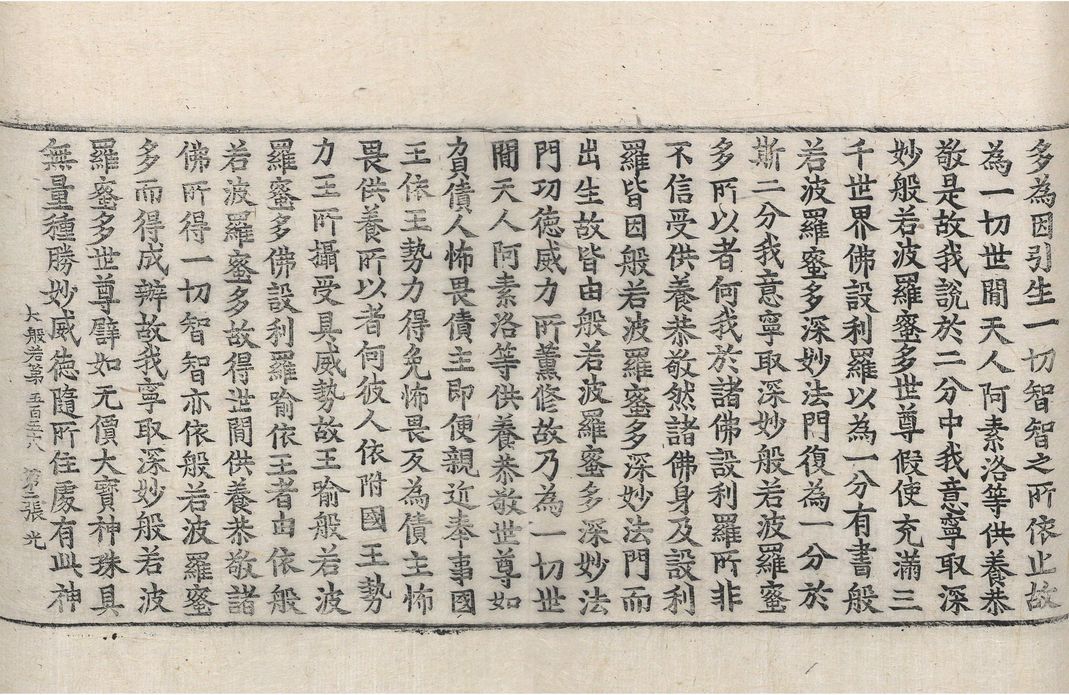 多為因引生一切智智之所依止故
為一切世間天人阿素洛等供養恭
敬是故我說於二分中我意寧取深
妙般若波羅蜜多世尊假使充滿三
千世界佛設利羅以為一分有書般
若波羅蜜多深妙法門復為一分於
斯二分我意寧取深妙般若波羅蜜
多所以者何我於諸佛設利羅所非
不信受供養恭敬然諸佛身及設利
羅皆因般若波羅蜜多深妙法門而
出生故皆由般若波羅蜜多深妙法
門功德威力所薰修故乃為一切世
間天人阿素洛等供養恭敬世尊如
負債人怖畏債主即便親近奉事國
王依王勢力得免怖畏反為債主怖
畏供養所以者何彼人依附國王勢
力王所攝受具威勢故王喻般若波
羅蜜多佛設利羅喻依王者由依般
若波羅蜜多故得世間供養恭敬諸
佛所得一切智智亦依般若波羅蜜
多而得成辦故我寧取深妙般若波
羅蜜多世尊譬如无價大寶神珠具
無量種勝妙威德隨所住處有此神
大般若第五百五十八 第二張 光